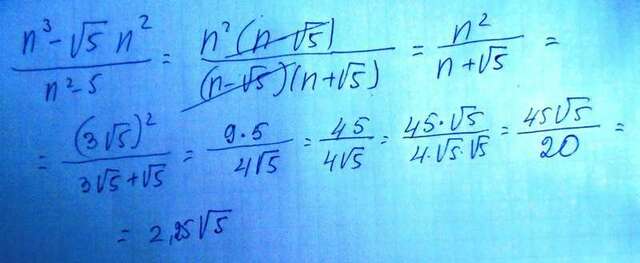 (n³ - √5 n²)/(n² - 5) = (n²(n - √5))/((n - √5)(n + √5)) = n²/(n + √5) =
= (3√5)²/(3√5 + √5) = (9·5)/(4√5) = 45/(4√5) = (45·√5)/(4·√5·√5) = (45√5)/20 =
= 2,25√5